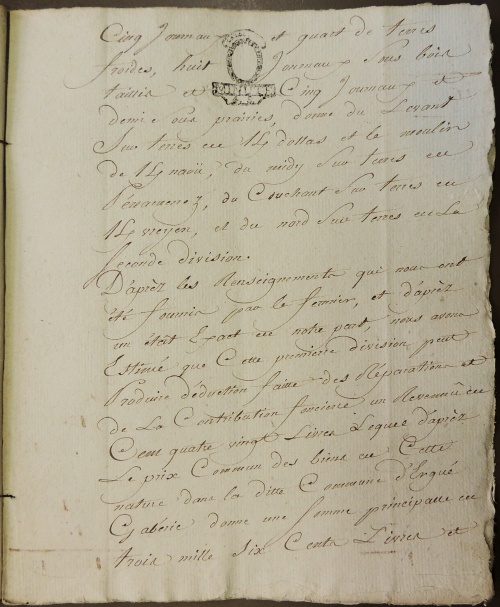 Cinq Journaux et quart de terres
froides, huit Journaux sous bois
taillis et Cinq Journaux et
demie sous prairies, donne du Levant
Sur terres de K dollas et le moulin
de K naoü, du midy sur terres de
Penamenez, du Couchant Sur terres de
K vreyen, et du nord Sur terres de la
Seconde division.
D'aprèz les Renseignements qui nous ont
été fournis par le fermier, et d'aprèz
un état Exact de notre part, nous avons
Estimé que Cette premiere division peut
Produire déduction faitte des Réparations et
de La Contribution fonciere un Revenû de
Cent quatre vingt Livres Lequel d'aprèz
Le prix Commun des biens de Cette
nature dans la ditte Commune d'Ergué
Gabéric donne une Somme principalle de
trois mille Six Cents Livres et